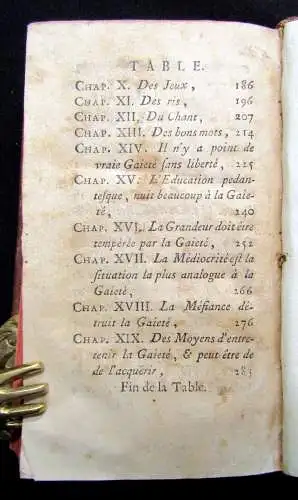 TABLE.
CHAP. X. Des Jeux, 186
CHAP. XI. Des ris, 196
CHAP. XII. Du Chant, 207
CHAP. XIII. Des bons mots, 214
CHAP. XIV. Il n'y a point de
vraie Gaieté sans liberté, 225
CHAP. XV. L'Education pédan-
tesque, nuit beaucoup à la Gaie-
té, 240
CHAP. XVI. La Grandeur doit être
tempérée par la Gaieté, 252
CHAP. XVII. La Médiocrité est la
situation la plus analogue à la
Gaieté, 266
CHAP. XVIII. La Méfiance dé-
truit la Gaieté, 276
CHAP. XIX. Des Moyens d'entre-
tenir la Gaieté, & peut être de
de l'acquérir, 283
Fin de la Table.